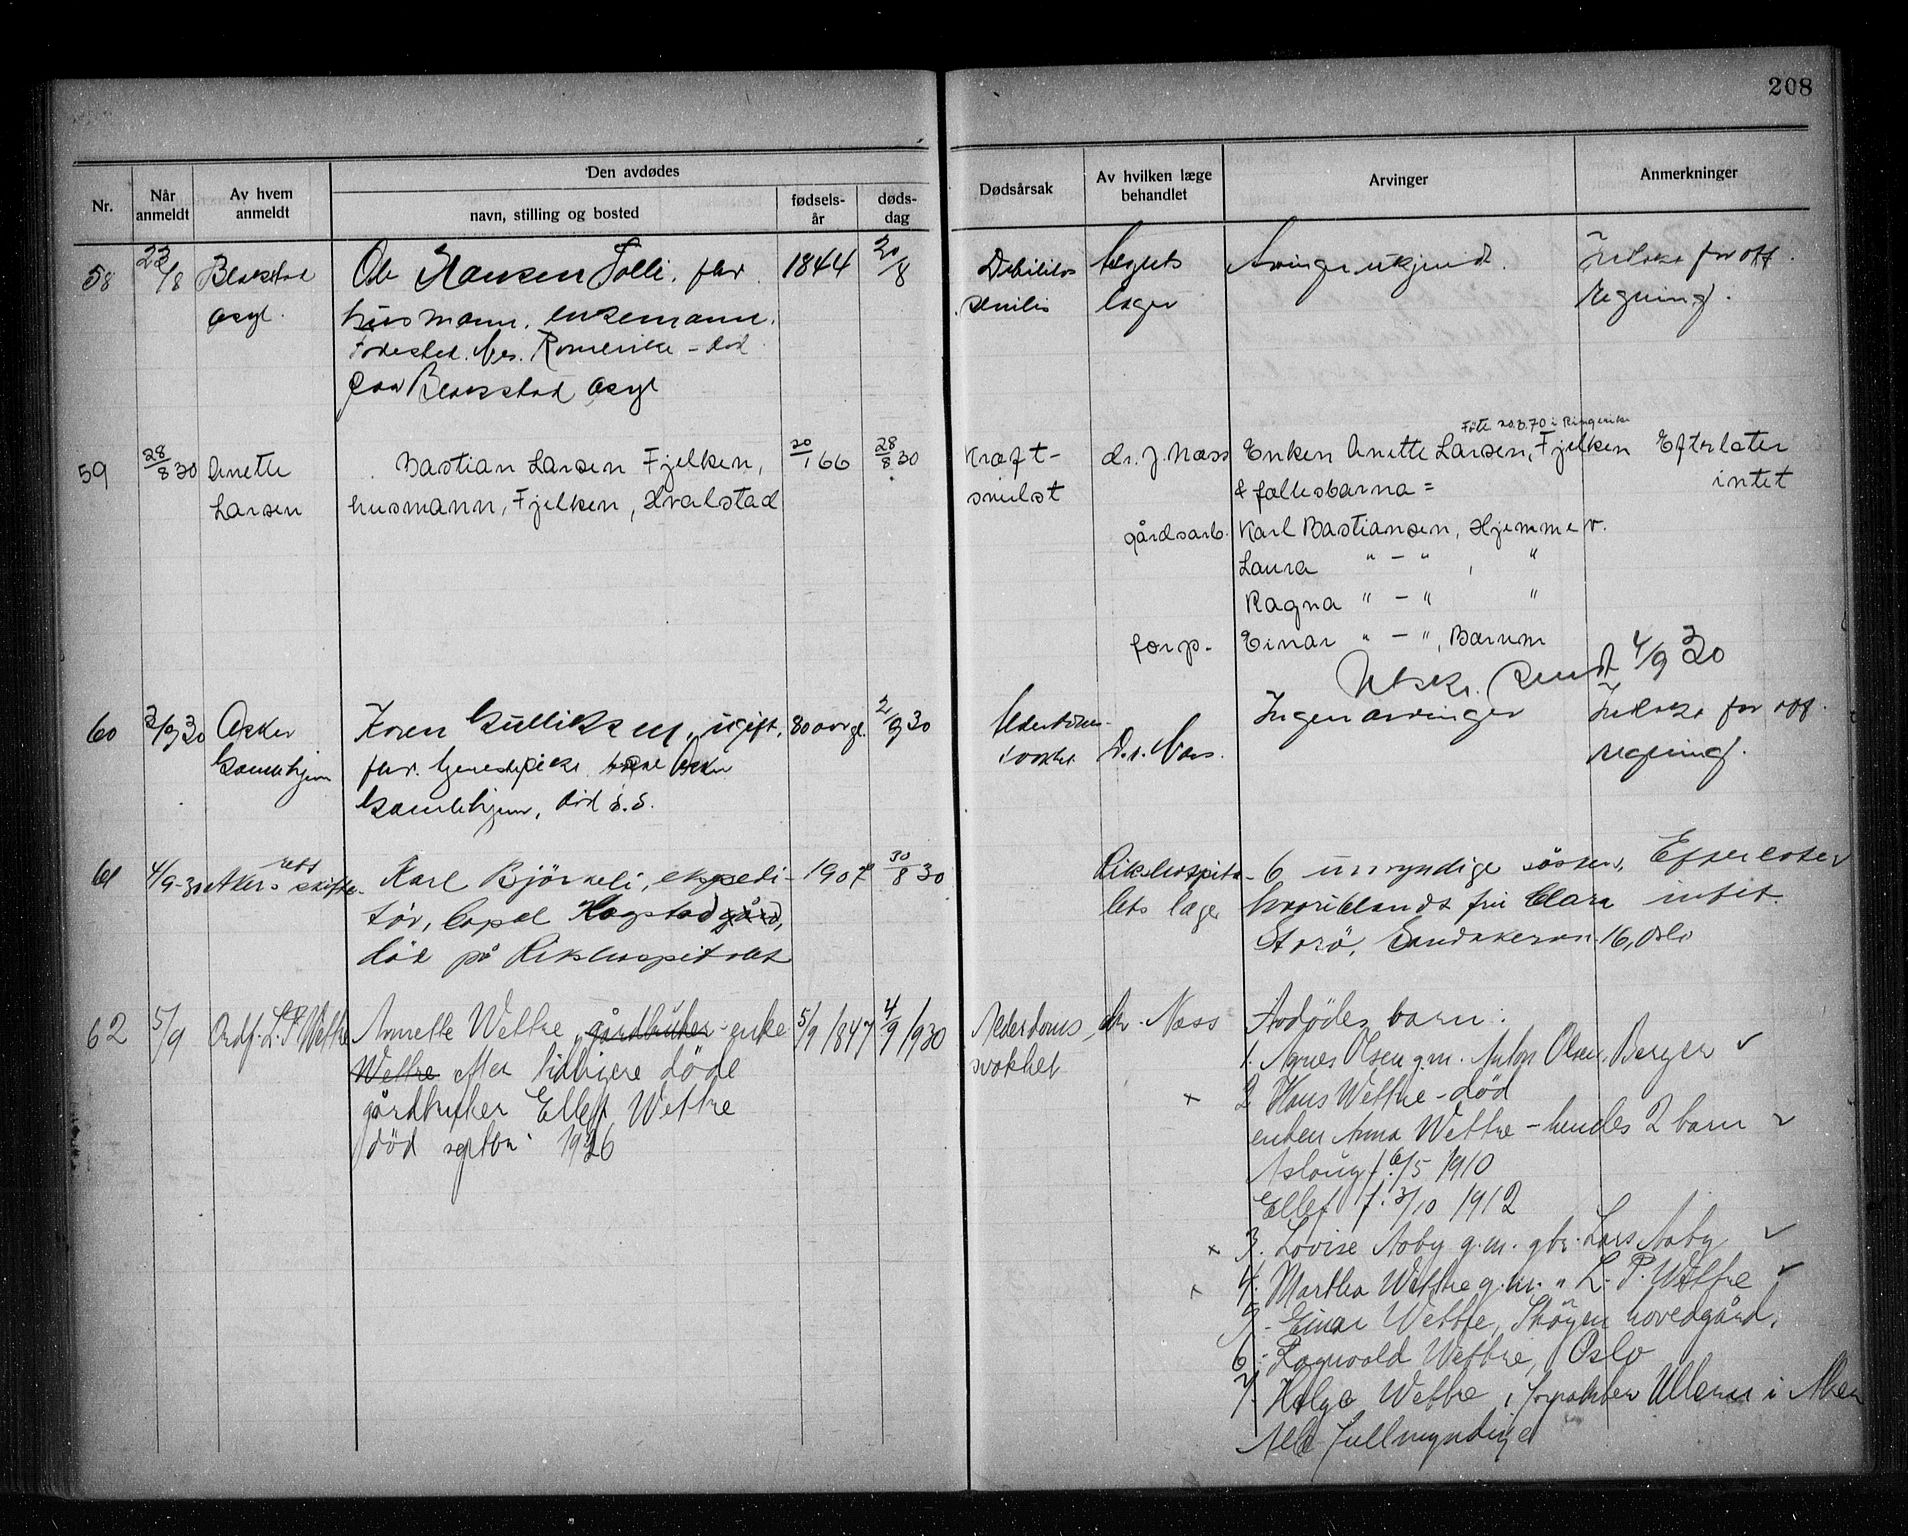 208
Den avdødes
Nr.
Når
anmeldt
Av hvem
anmeldt
navn, stilling og bosted
fødsels-
år
døds-
dag
Dødsårsak
Av hvilken læge
behandlet
Arvinger
Anmerkninger
58
22/8
Blakstad
Asyl.
Ole Hansen Tolli, fhv.
husmann, enkemann.
Fødested. Nes. Romerike - død
paa Blakstad Asyl
1844
20/8
Debilitas
senilis
Asylets
læger
Arvinger ukjendt.
for off.
regning.
59
28/8 30
Anette
Larsen
Bastian Larsen Fjelken,
husmann, Fjelken, Hvalstad
20/1 66
28/8 30
Kræft-
svulst
dr. J. Næss
Føte 20.3.70 i Ringerike
Enken Anette Larsen, Fjelken
& fællesbarna =
gårdsarb. Karl Bastiansen, Hjemmev.
Laura " - " , "
Ragna " - " "
forp. Einar " - ", Bærum
Efterlater
intet
Utskr. sendt 4/9 30
60
3/9 30
Asker
Gamlehjem
Karen Gulliksen, ugift,
fhv. tjenestepike Asker
Gamlehjem, død s.s.
80 aar gl.
2/9 30
Alderdoms-
svakhet
Dr. Næss.
Ingen arvinger
for off.
regning.
61
4/9-30
Akers skifterett
Karl Björkeli, ekspedi-
tör, Hogstad gård,
död på Rikshospitalet
1907
30/8 30
Rikshospita-
lets læger
6 umyndige söskend,
hvoriblandt frk Clara
Storö, Sandakervn. 16, Oslo
Efterlater
intet.
62
5/9
Ordf. L. P. Wettre
Annette Wettre, gårdbruker - enke
Wettre efter tidligere döde
gårdbruker Ellef Wettre
död septbr. 1926
5/9 1847
4/9 1930
Alderdoms
svakhet
dr. Næss
Avdödes barn:
1. Agnes Olsen g.m. Anton Olsen, Berger ✓
x 2 Hans Wettre - död
enken Anna Wettre - hendes 2 barn ✓
Aslaug f. 6/5 1910
Ellef f. 3/10 1912
x 3. Lovise Aaby g.m. gbr. Lars Aaby ✓
x 4. Martha Wettre g.m. " L. P. Wettre ✓
5. Einar Wettre, Skögen hovedgård,
6. Ragnvald Wettre, Oslo
7. Helge Wettre, forpakter Ullern i Aker
Alle fullmyndige